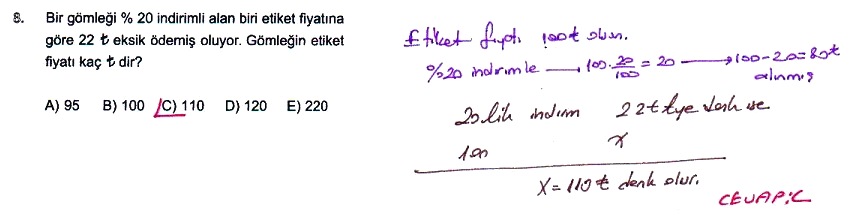 8. Bir gömleği % 20 indirimli alan biri etiket fiyatına
göre 22 ₺ eksik ödemiş oluyor. Gömleğin etiket
fiyatı kaç ₺ dir?
A) 95 B) 100 C) 110 D) 120 E) 220
Etiket fiyatı 100₺ olsun.
%20 indirimle → 100·20/100 = 20 → 100-20=80₺
alınmış
20 lik indirim 22₺ tye denk ise
100 x
x = 110 ₺ denk olur.
CEVAP:C